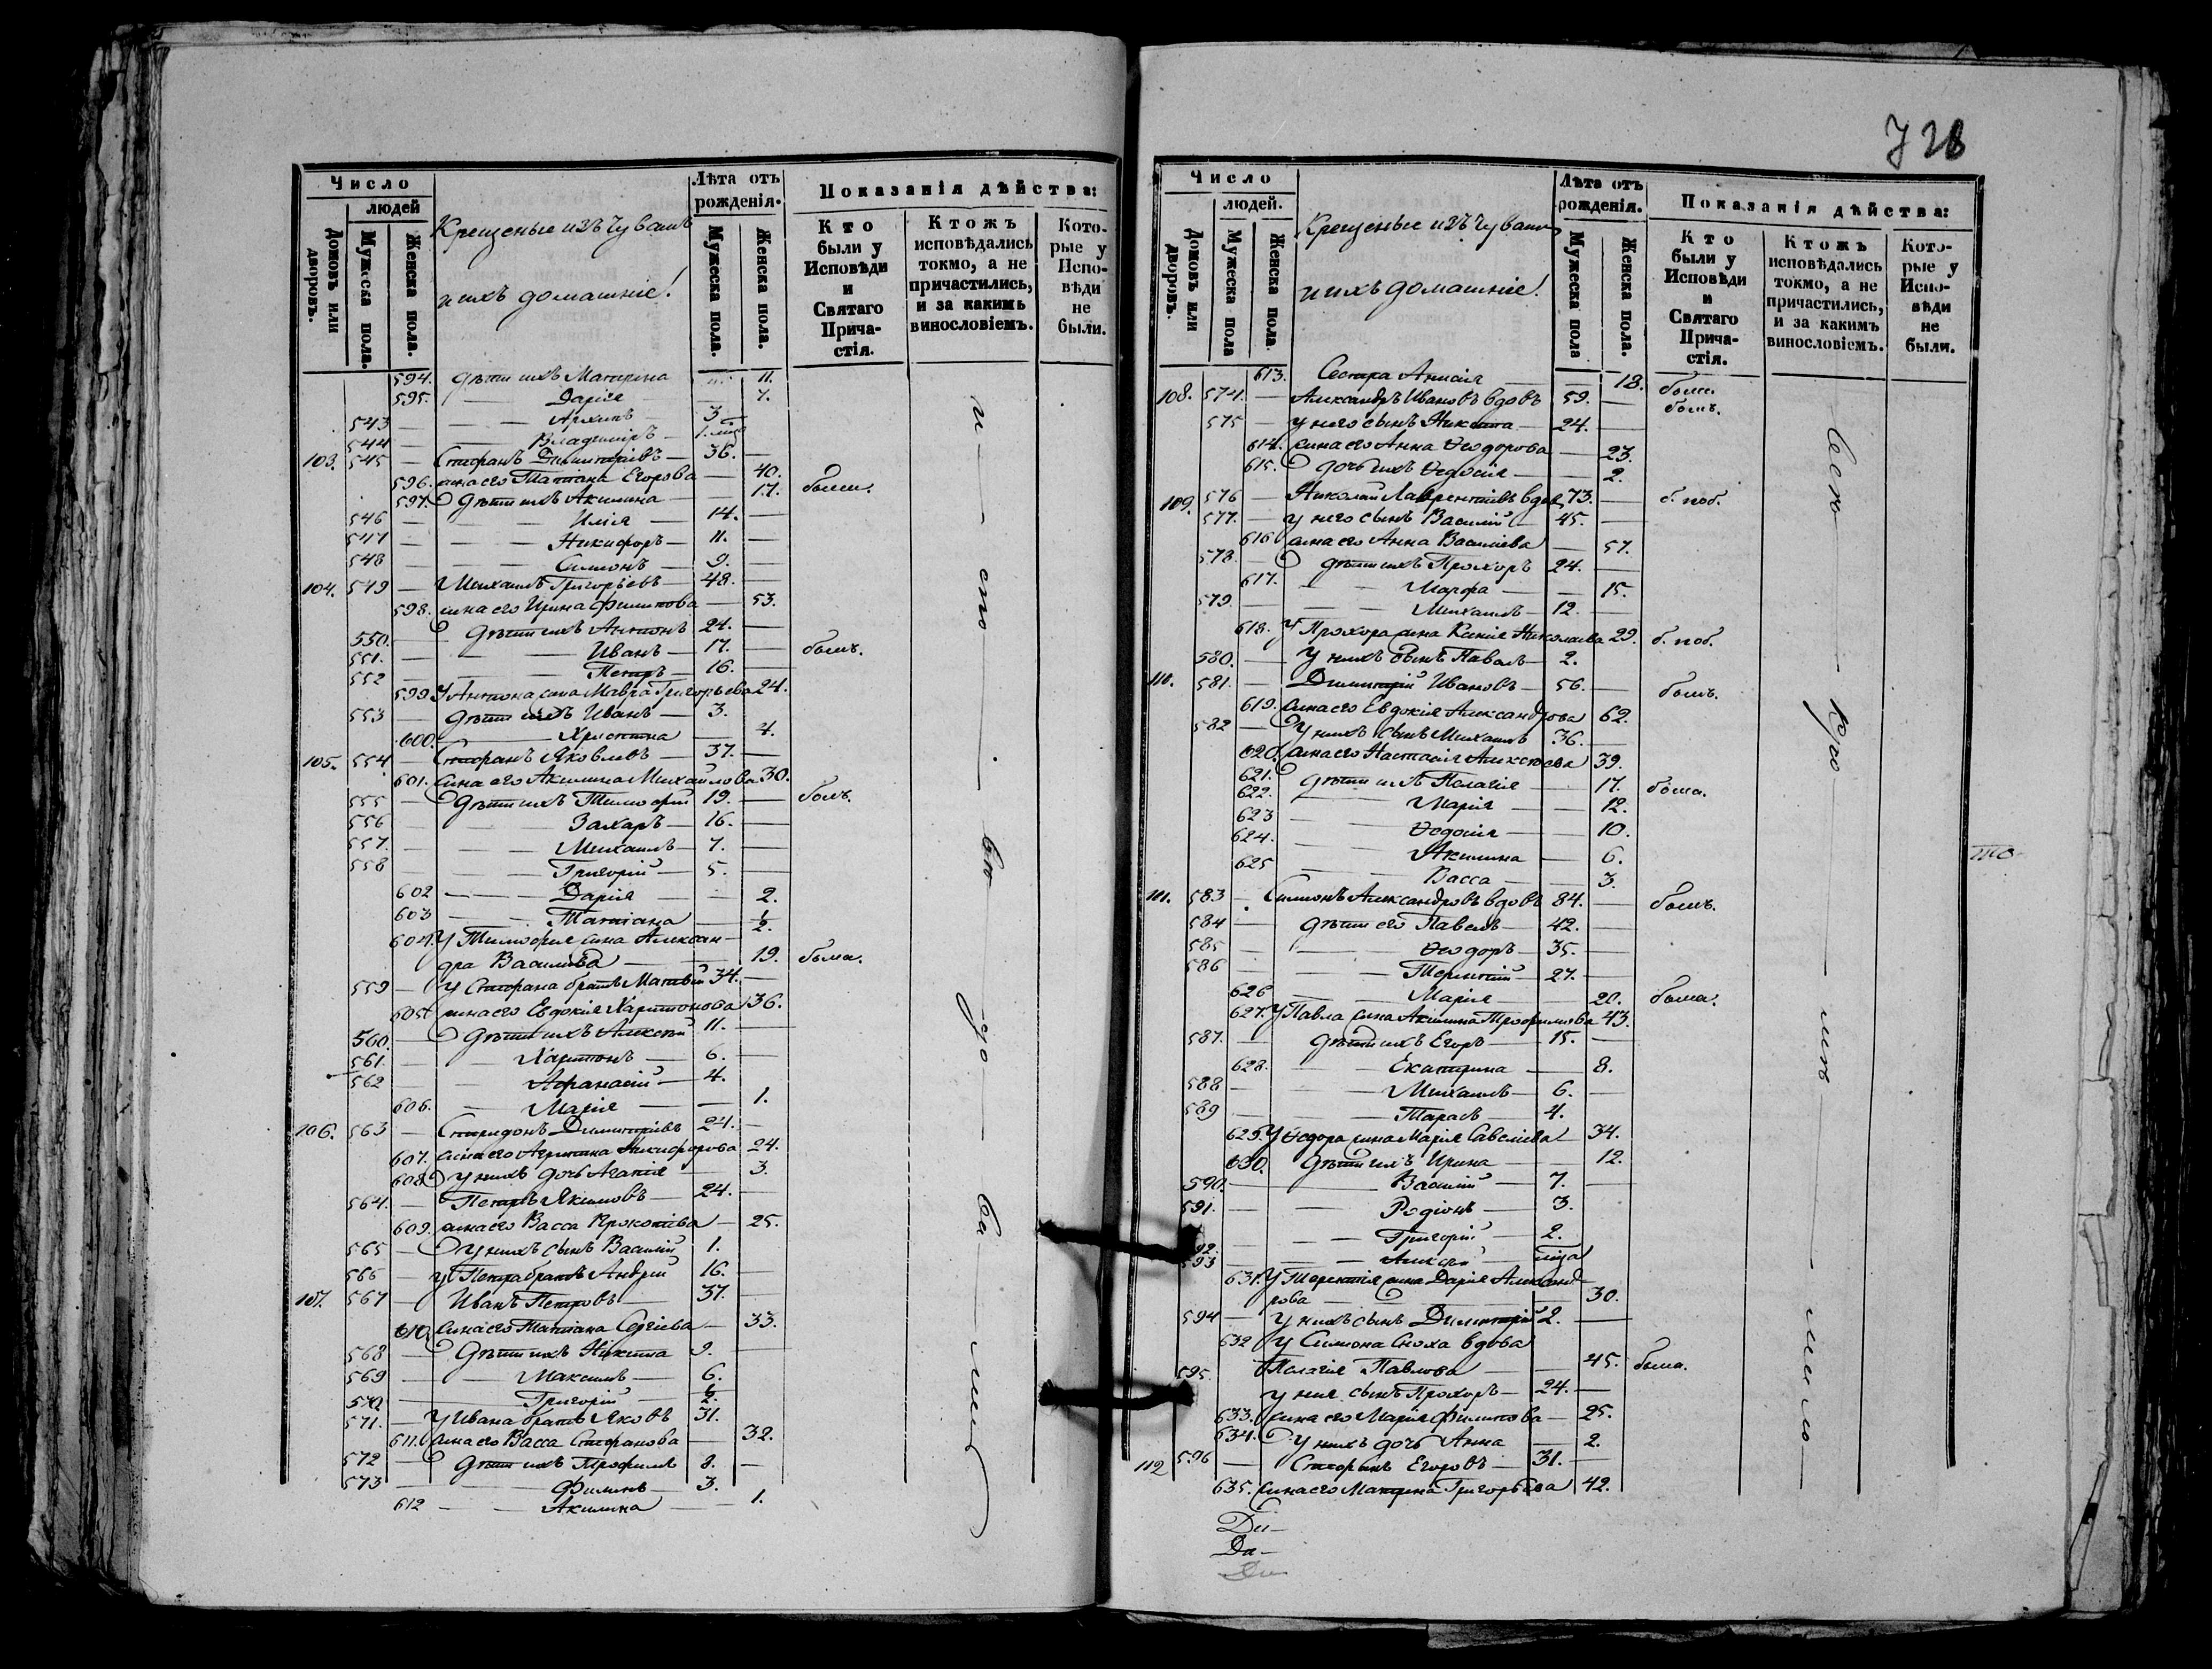 Число
людей
Домовъ или дворовъ.
Мужеска пола.
Женска пола.
Крещеные изъ Чувашъ
и ихъ домашніе.
Лѣта отъ рожденія.
Мужеска пола.
Женска пола.
Показанія дѣйства:
Кто были у Исповѣди и Святаго Причастія.
Ктожъ исповѣдались токмо, а не причастились, и за какимъ винословіемъ.
Которые у Исповѣди не были.
594. дѣти ихъ Матрена — 11.
595. — Дарія — 7.
543 — Архипъ — 3 —
544 — Владиміръ —
103. 545 — Стефанъ Димитріевъ — 36. —
596. жена его Татіана Егорова — 40. были.
597. дѣти ихъ Акилина — 17.
546 — Илія — 14. —
547 — Никифоръ — 11. —
548 — Симонъ — 9. —
104. 549 — Михаилъ Григорьевъ — 48. —
598. жена его Ирина Филипова — 53.
550. — дѣти ихъ Антонъ 24. —
551. — Иванъ — 17. — былъ.
552 — Петръ — 16. —
599 У Антона жена Мавра Григорьева 24.
553 — дѣти ихъ Иванъ — 3.
600. — Христина — 4.
105. 554 — Стефанъ Яковлевъ — 37. —
601. жена его Акилина Михайлова 30.
555 — дѣти ихъ Тимофей 19. — былъ.
556 — Захаръ — 16. —
557. — Михаилъ — 7. —
558 — Григорій — 5. —
602 — Дарія — 2.
603 — Татіана — ½.
604. У Тимофея жена Алексан-
дра Васильева — 19. была.
559 — У Стефана братъ Матвей 34. —
605. жена его Евдокія Харитонова 36.
560. — дѣти ихъ Алексей 11. —
561. — Харитонъ — 6. —
562 — Афанасій — 4.
606. — Марія — 1.
106. 563 — Спиридонъ Димитріевъ 24. —
607. жена его Агрипина Никифорова 24.
608 у нихъ дочь Агапія — 3.
564. — Петръ Якимовъ — 24. —
609. жена его Васса Прокопіева — 25.
565 — у нихъ сынъ Василій 1.
566 — у Петра братъ Андрей 16. —
107. 567 — Иванъ Петровъ — 37. —
610. жена его Татіана Сергіева — 33.
568 — дѣти ихъ Никита 9. —
569 — Максимъ — 6.
570. — Григорій — ½
571. — У Ивана братъ Яковъ 31.
611. жена его Васса Стефанова — 32.
572 — дѣти ихъ Трофимъ 8. —
573 — Филипъ — 3.
612 — Акилина — 1.
728
Число
людей.
Домовъ или дворовъ.
Мужеска пола
Женска пола.
Крещеные изъ Чувашъ
и ихъ домашніе.
Лѣта отъ рожденія.
Мужеска пола
Женска пола.
Показанія дѣйства:
Кто были у Исповѣди и Святаго Причастія.
Ктожъ исповѣдались токмо, а не причастились, и за какимъ винословіемъ.
Которые у Исповѣди не были.
613. Сестра Анисія — 18.
108. 574. — Александръ Ивановъ вдовъ 59. — былъ.
575 — у него сынъ Никита — 24. —
614. жена его Анна Ѳеодорова — 23.
615. дочь ихъ Ѳедосія — 2.
109. 576 — Николай Лаврентіевъ вдов. 73. — б. поб.
577. — у него сынъ Василій — 45. —
616 жена его Анна Васильева — 57.
578. — дѣти ихъ Прохоръ 24. —
617. — Марфа — 15.
579. — Михаилъ — 12. —
618. У Прохора жена Ксенія Николаева 29. б. поб.
580. — у нихъ сынъ Павелъ — 2.
110. 581. — Димитрій Ивановъ — 56. — былъ.
619. жена его Евдокія Александрова 62.
582 — у нихъ сынъ Михаилъ 36. —
620. жена его Настасія Алексеева 39.
621. дѣти ихъ Пелагія — 17. была.
622. — Марія — 12.
623 — Ѳедосія — 10.
624. — Акилина — 6.
625 — Васса — 3.
111. 583 — Симонъ Александровъ вдовъ 84. — былъ.
584 — дѣти его Павелъ — 42. —
585 — Ѳеодоръ — 35. —
586 — Терентій — 27. —
626 — Марія — 20. была.
627. У Павла жена Акилина Трофимова 43.
587. — дѣти ихъ Егоръ — 15. —
628. — Екатерина — 8.
588 — Михаилъ — 6. —
589 — Тарасъ — 4.
629. У Ѳедора жена Марія Савеліева — 34.
630. дѣти ихъ Ирина — 12.
590. — Василій — 7. —
591. — Родіонъ — 3.
92. — Григорій — 2.
593 — Алексей —
631. У Терентія жена Дарія Александ-
рова — 30.
594 — у нихъ сынъ Димитрій 2. —
632 У Симона сноха вдова
Пелагія Павлова — 45. была.
595. у нея сынъ Прохоръ — 24. —
633. жена его Марія Филипова — 25.
634. у нихъ дочь Анна — 2.
112 596 — Стефанъ Егоровъ — 31. —
635. жена его Матрена Григорьева 42.
Ди-
Да-